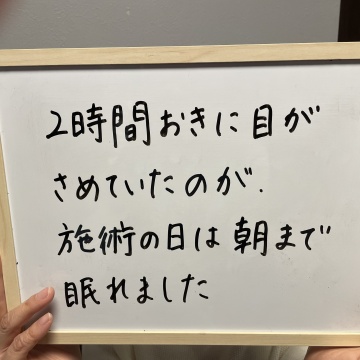 2時間おきに目が
さめていたのが、
施術の日は朝まで
眠れました